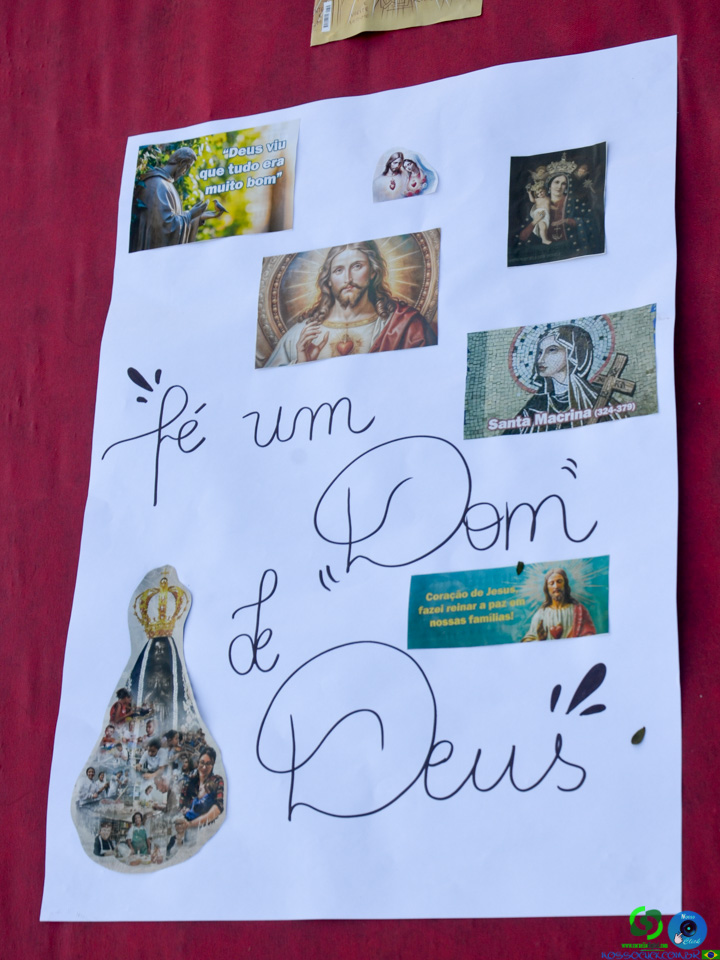 "Deus viu
que tudo era
muito bom"
Santa Macrina (324-379)
fé um
"Dom"
de
Coração de Jesus
fazei reinar a paz em
nossas famílias!
Deus
Nosso
Click